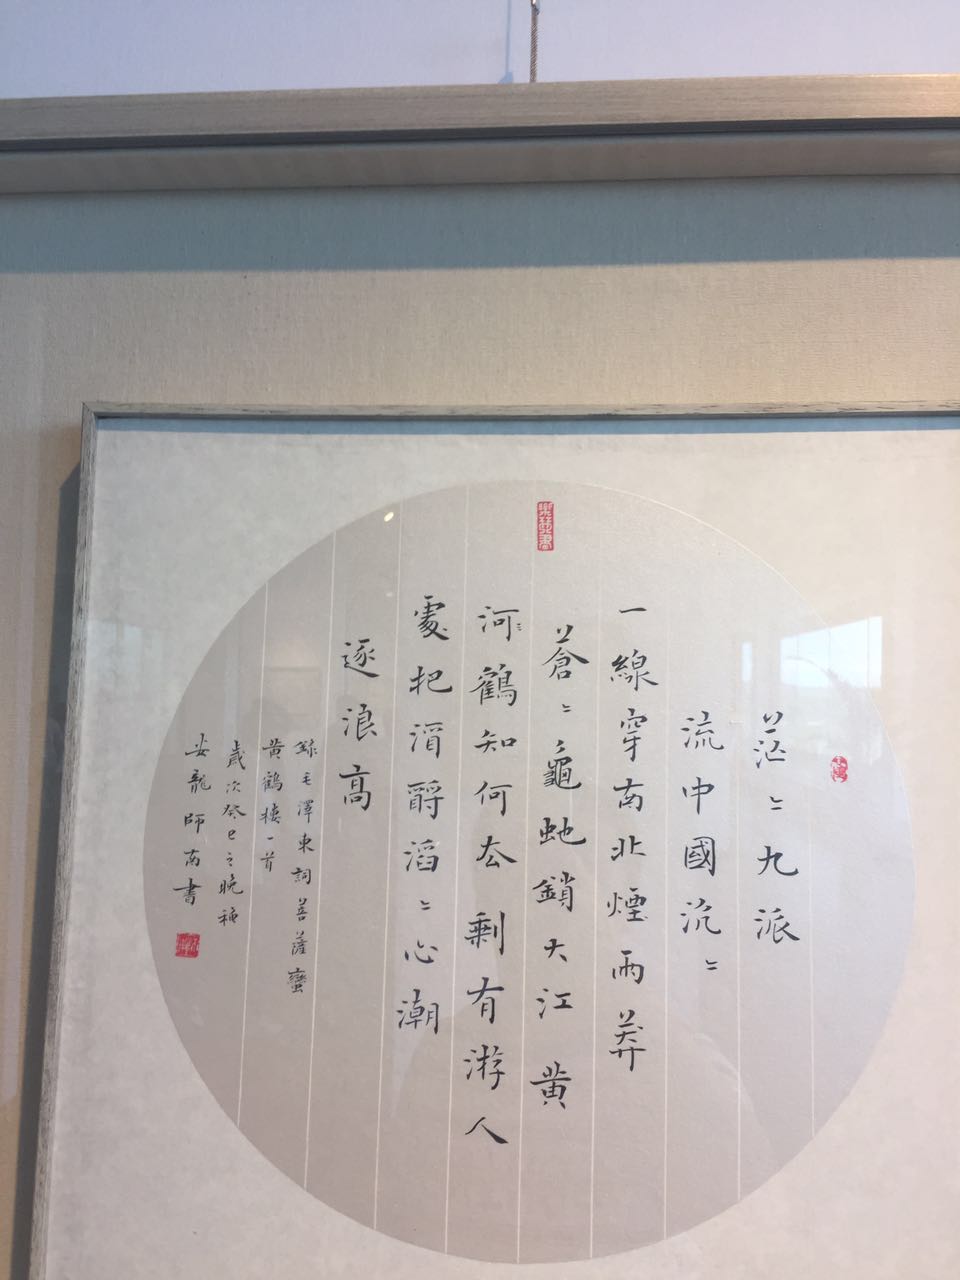 茫〻九派
流中國沉〻
一線穿南北煙雨莽
蒼〻龜虵鎖大江黃
河鶴知何厺剩有游人
處把酒酹滔〻心潮
逐浪高
錄毛澤東詞菩薩蠻
黃鶴樓一首
歲次癸巳之晚秋
龍師南書